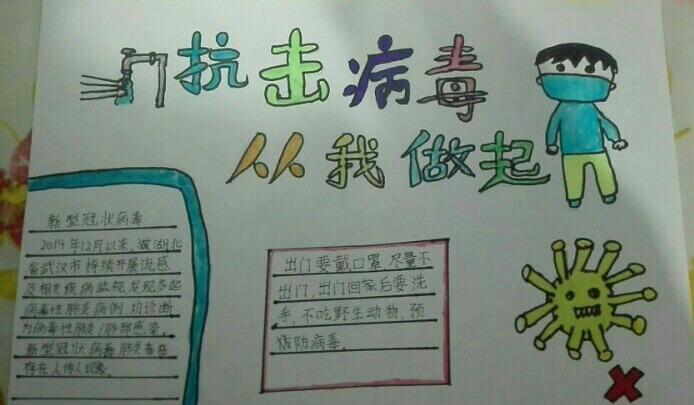 抗击病毒
从我做起
新型冠状病毒
2019年12月以来,湖北
省武汉市持续开展流感
及相关疾病监视,发现多起
病毒性肺炎病例,均诊断
为病毒性肺炎/肺部感染。
新型冠状病毒肺炎
存在人传人现象。
出门要戴口罩,尽量不
出门,出门回家后要洗
手,不吃野生动物,预
防病毒。